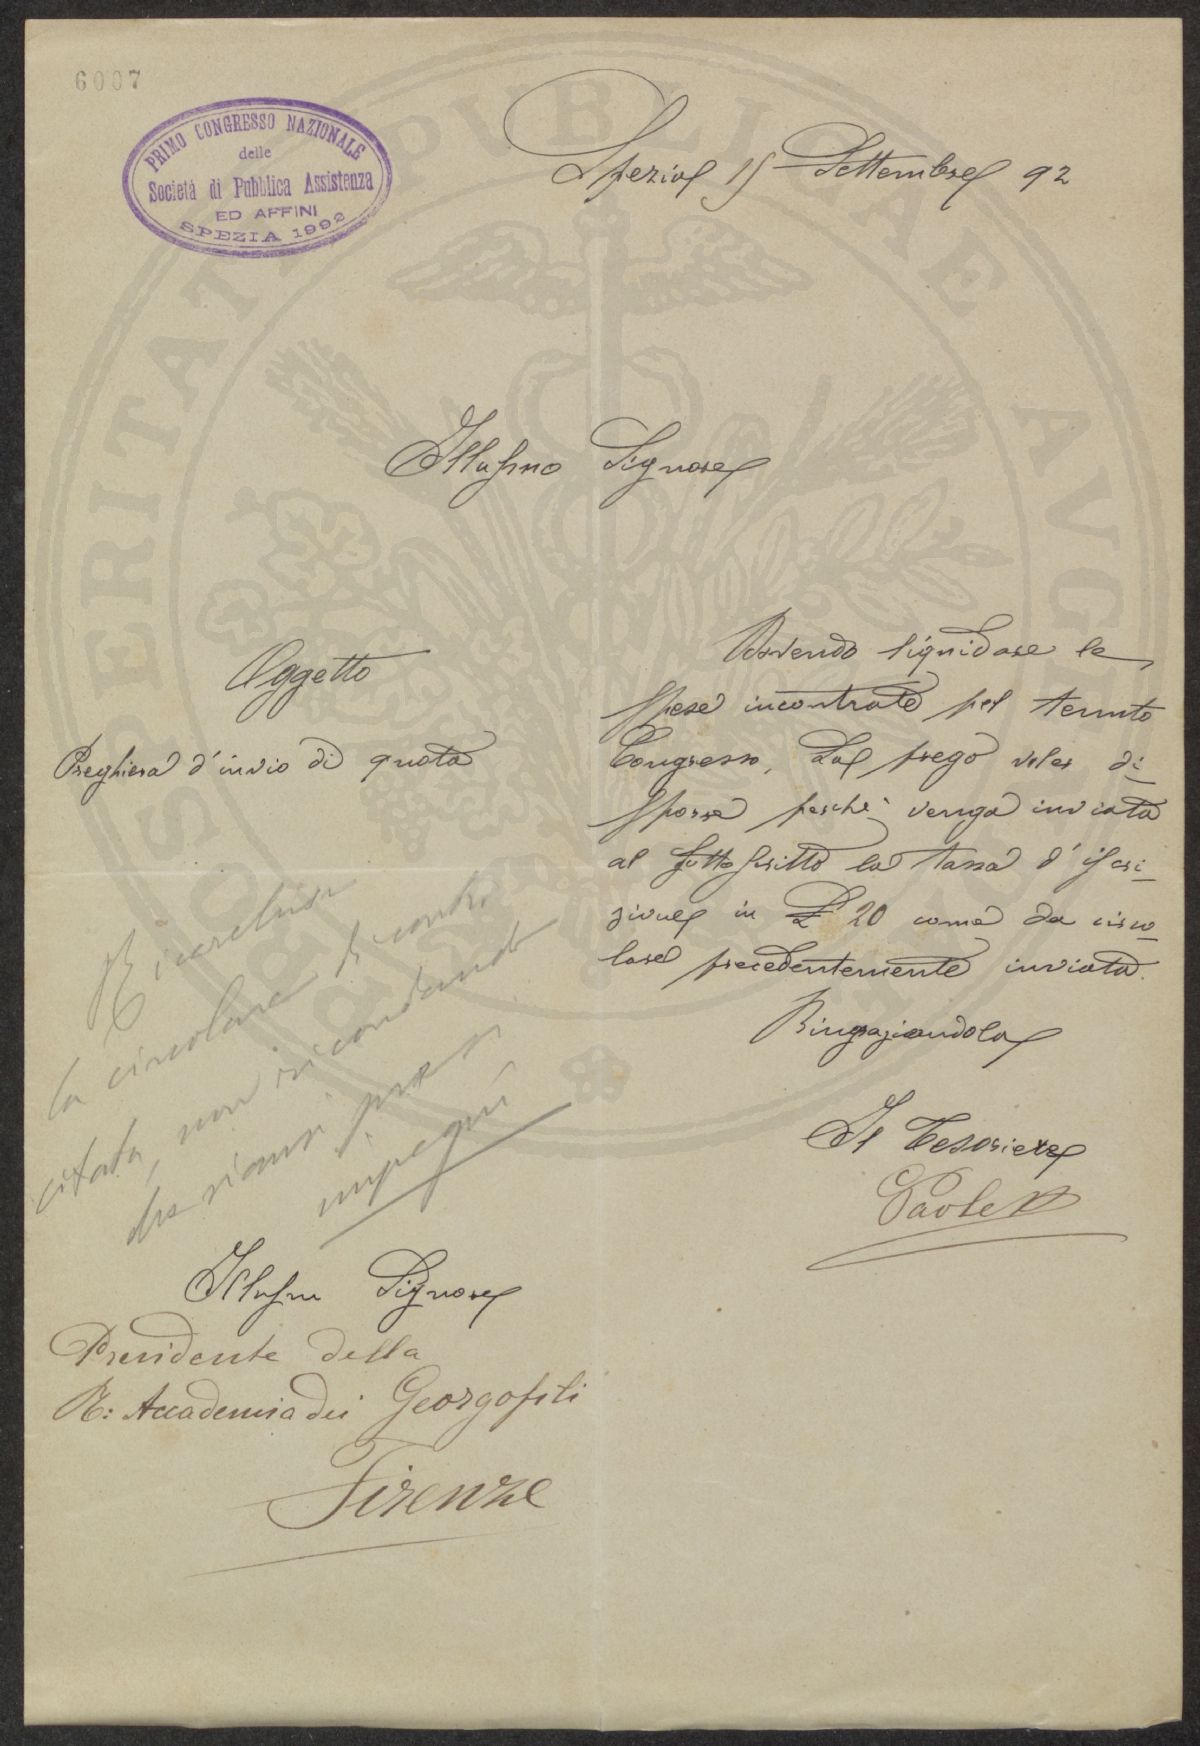 6007
PRIMO CONGRESSO NAZIONALE
delle
Società di Pubblica Assistenza
ED AFFINI
SPEZIA 1992
Spezia 15 Settembre 92
Illussmo Signore
Oggetto
Preghiera d'invio di quota
Dovendo liquidare le
spese incontrate pel tenuto
Congresso, La prego voler di-
sporre perchè venga inviata
al sottoscritto la tassa d'iscri-
zione in £ 20 come da circo-
lare precedentemente inviata.
Ringraziandola
Il Tesoriere
Richiedere
la circolare di contro
citata, non ricordando
che siansi presi
impegni
Illussmo Signore
Presidente della
R: Accademia dei Georgofili
Firenze